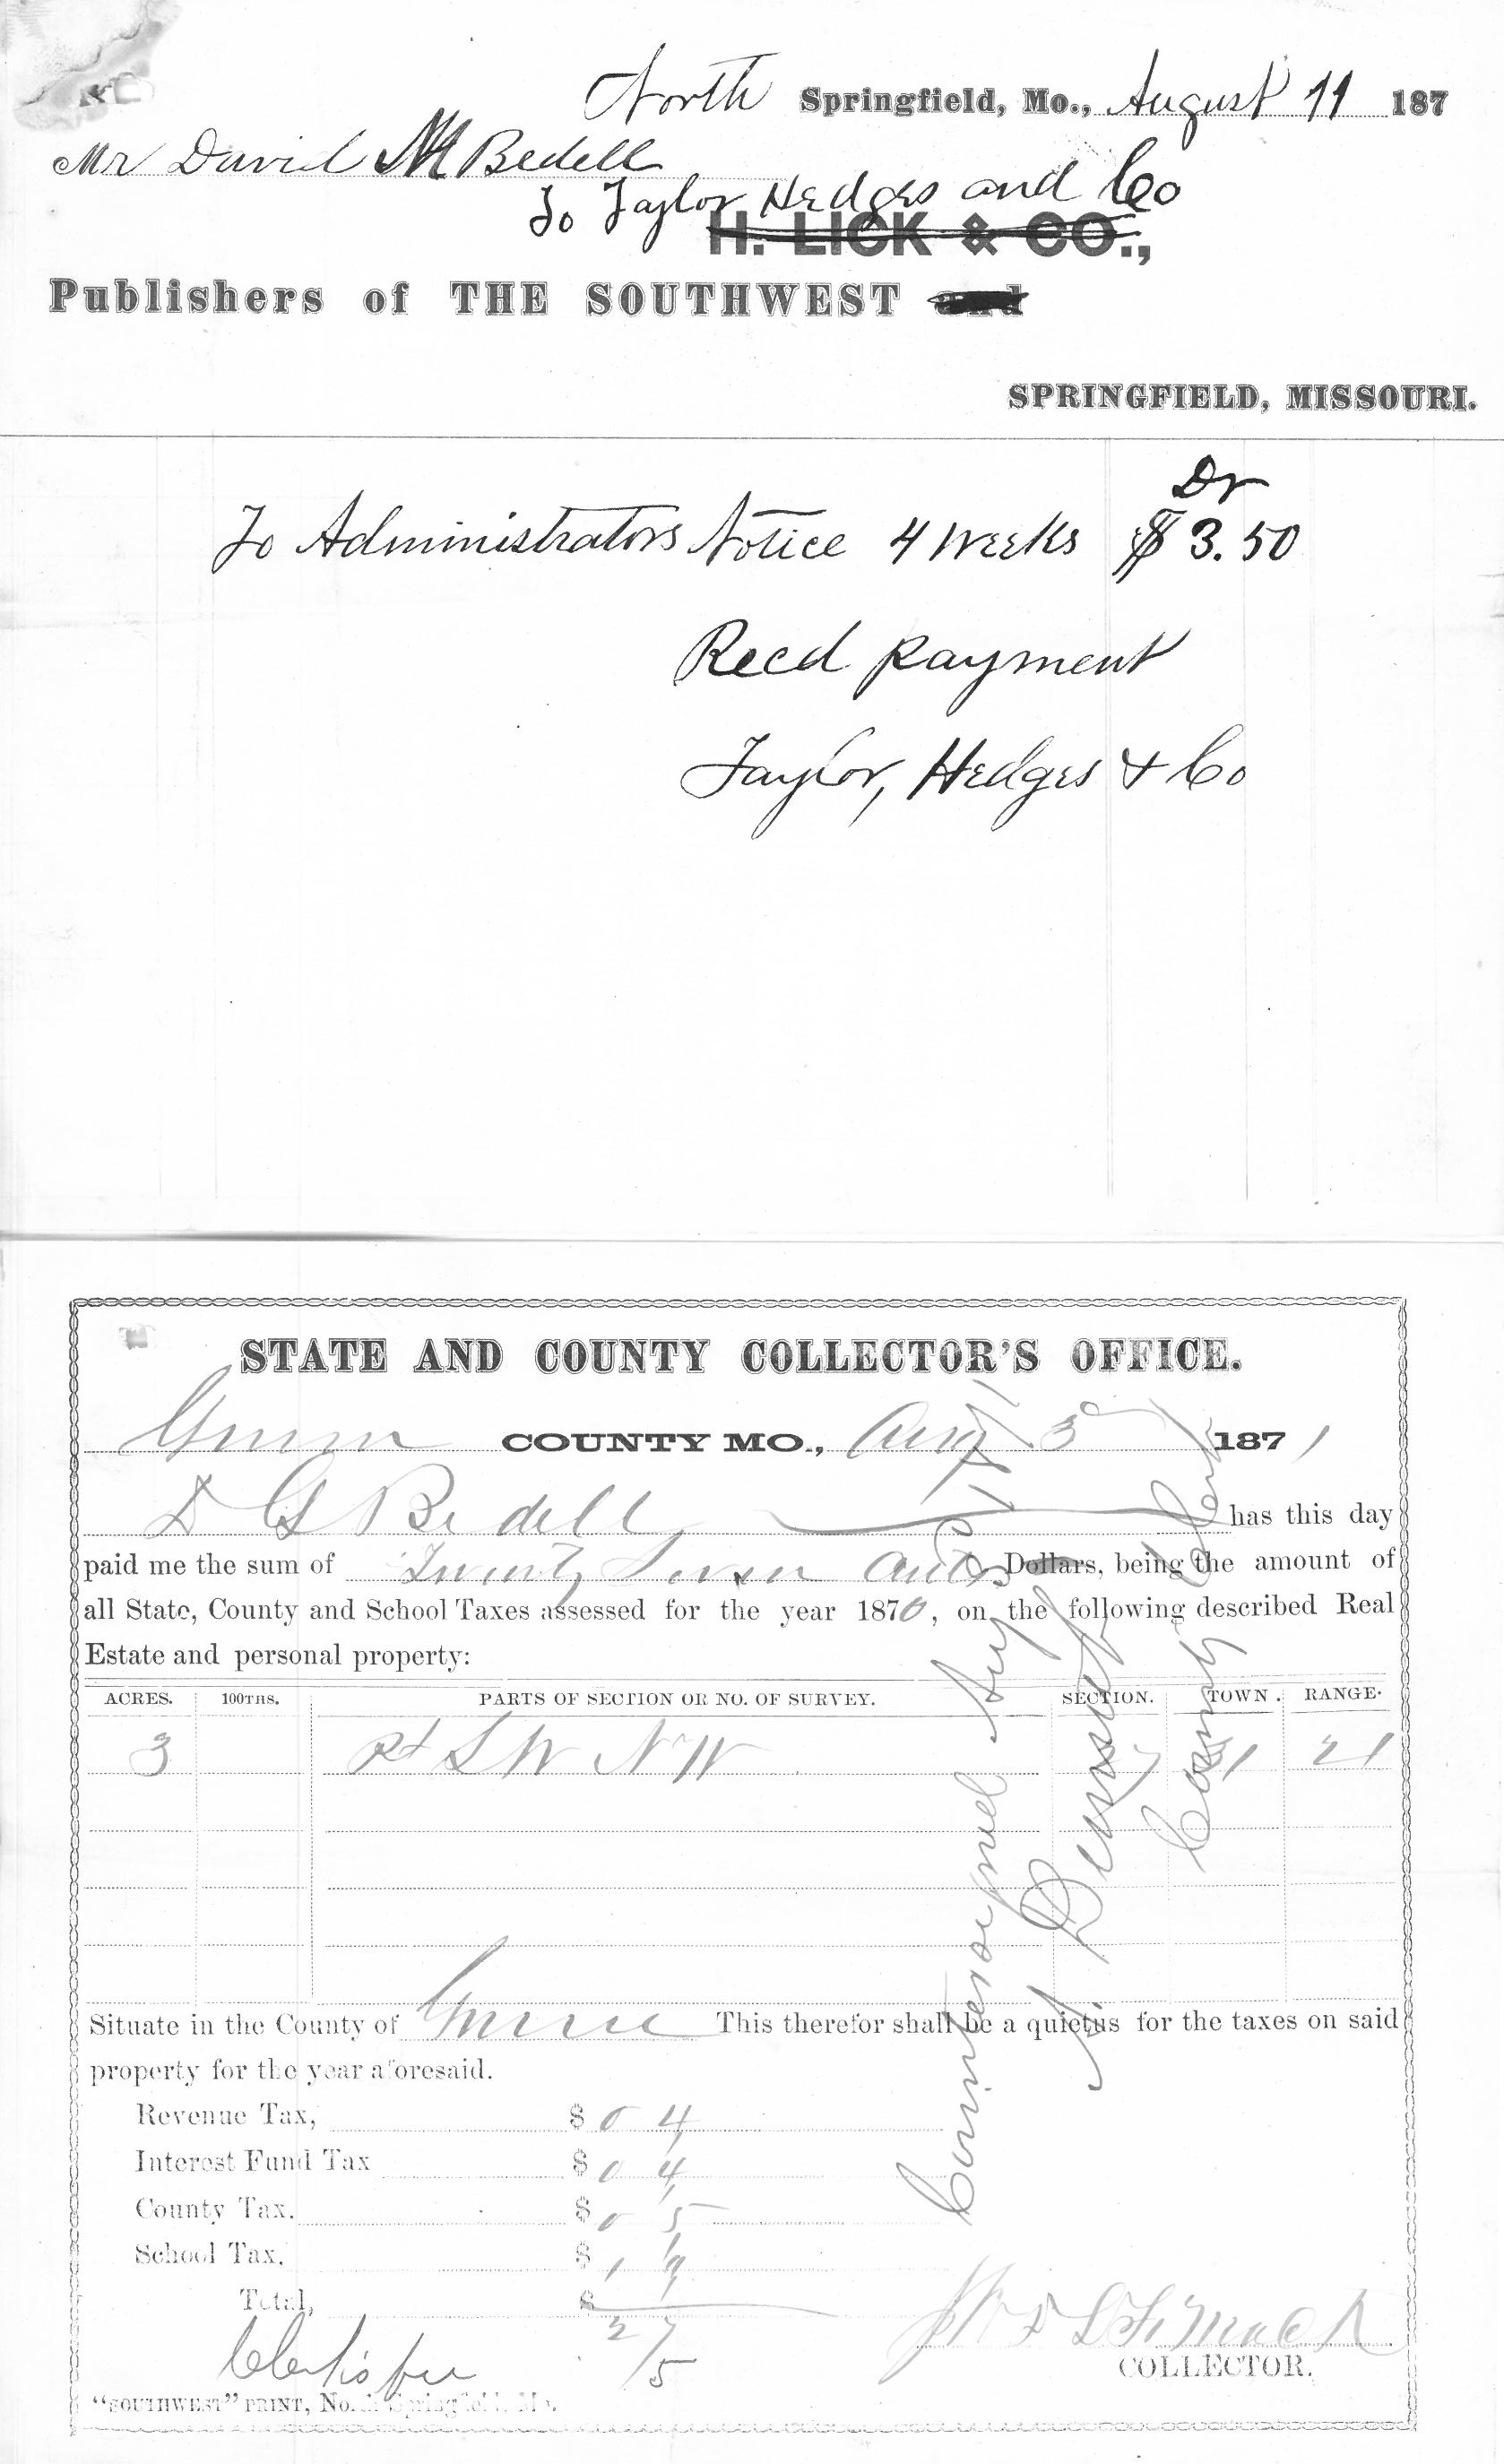 North Springfield, Mo., August 11 187
Mr David M Bedell
To Taylor Hedges and Co
H. LICK & CO.,
Publishers of THE SOUTHWEST and
SPRINGFIELD, MISSOURI.
Dr
To Administrators Notice 4 Weeks $3.50
Recd payment
Taylor, Hedges & Co
STATE AND COUNTY COLLECTOR'S OFFICE.
Green COUNTY MO., Aug 3 1871
D G Bedell has this day
paid me the sum of Twenty Seven Dollars, being the amount of
all State, County and School Taxes assessed for the year 1870, on the following described Real
Estate and personal property:
ACRES. 100THS. PARTS OF SECTION OR NO. OF SURVEY. SECTION. TOWN. RANGE.
3 Pt SW NW 7 31 21
Situate in the County of Greene This therefor shall be a quietus for the taxes on said
property for the year aforesaid.
Revenue Tax, $ 04
Interest Fund Tax $ 04
County Tax. $ 05
School Tax. $ 1
Total, $ 27
Clerks fee 15
COLLECTOR.
"SOUTHWEST" PRINT, North Springfield, Mo.
Countersigned Aug 1871
County Clerk